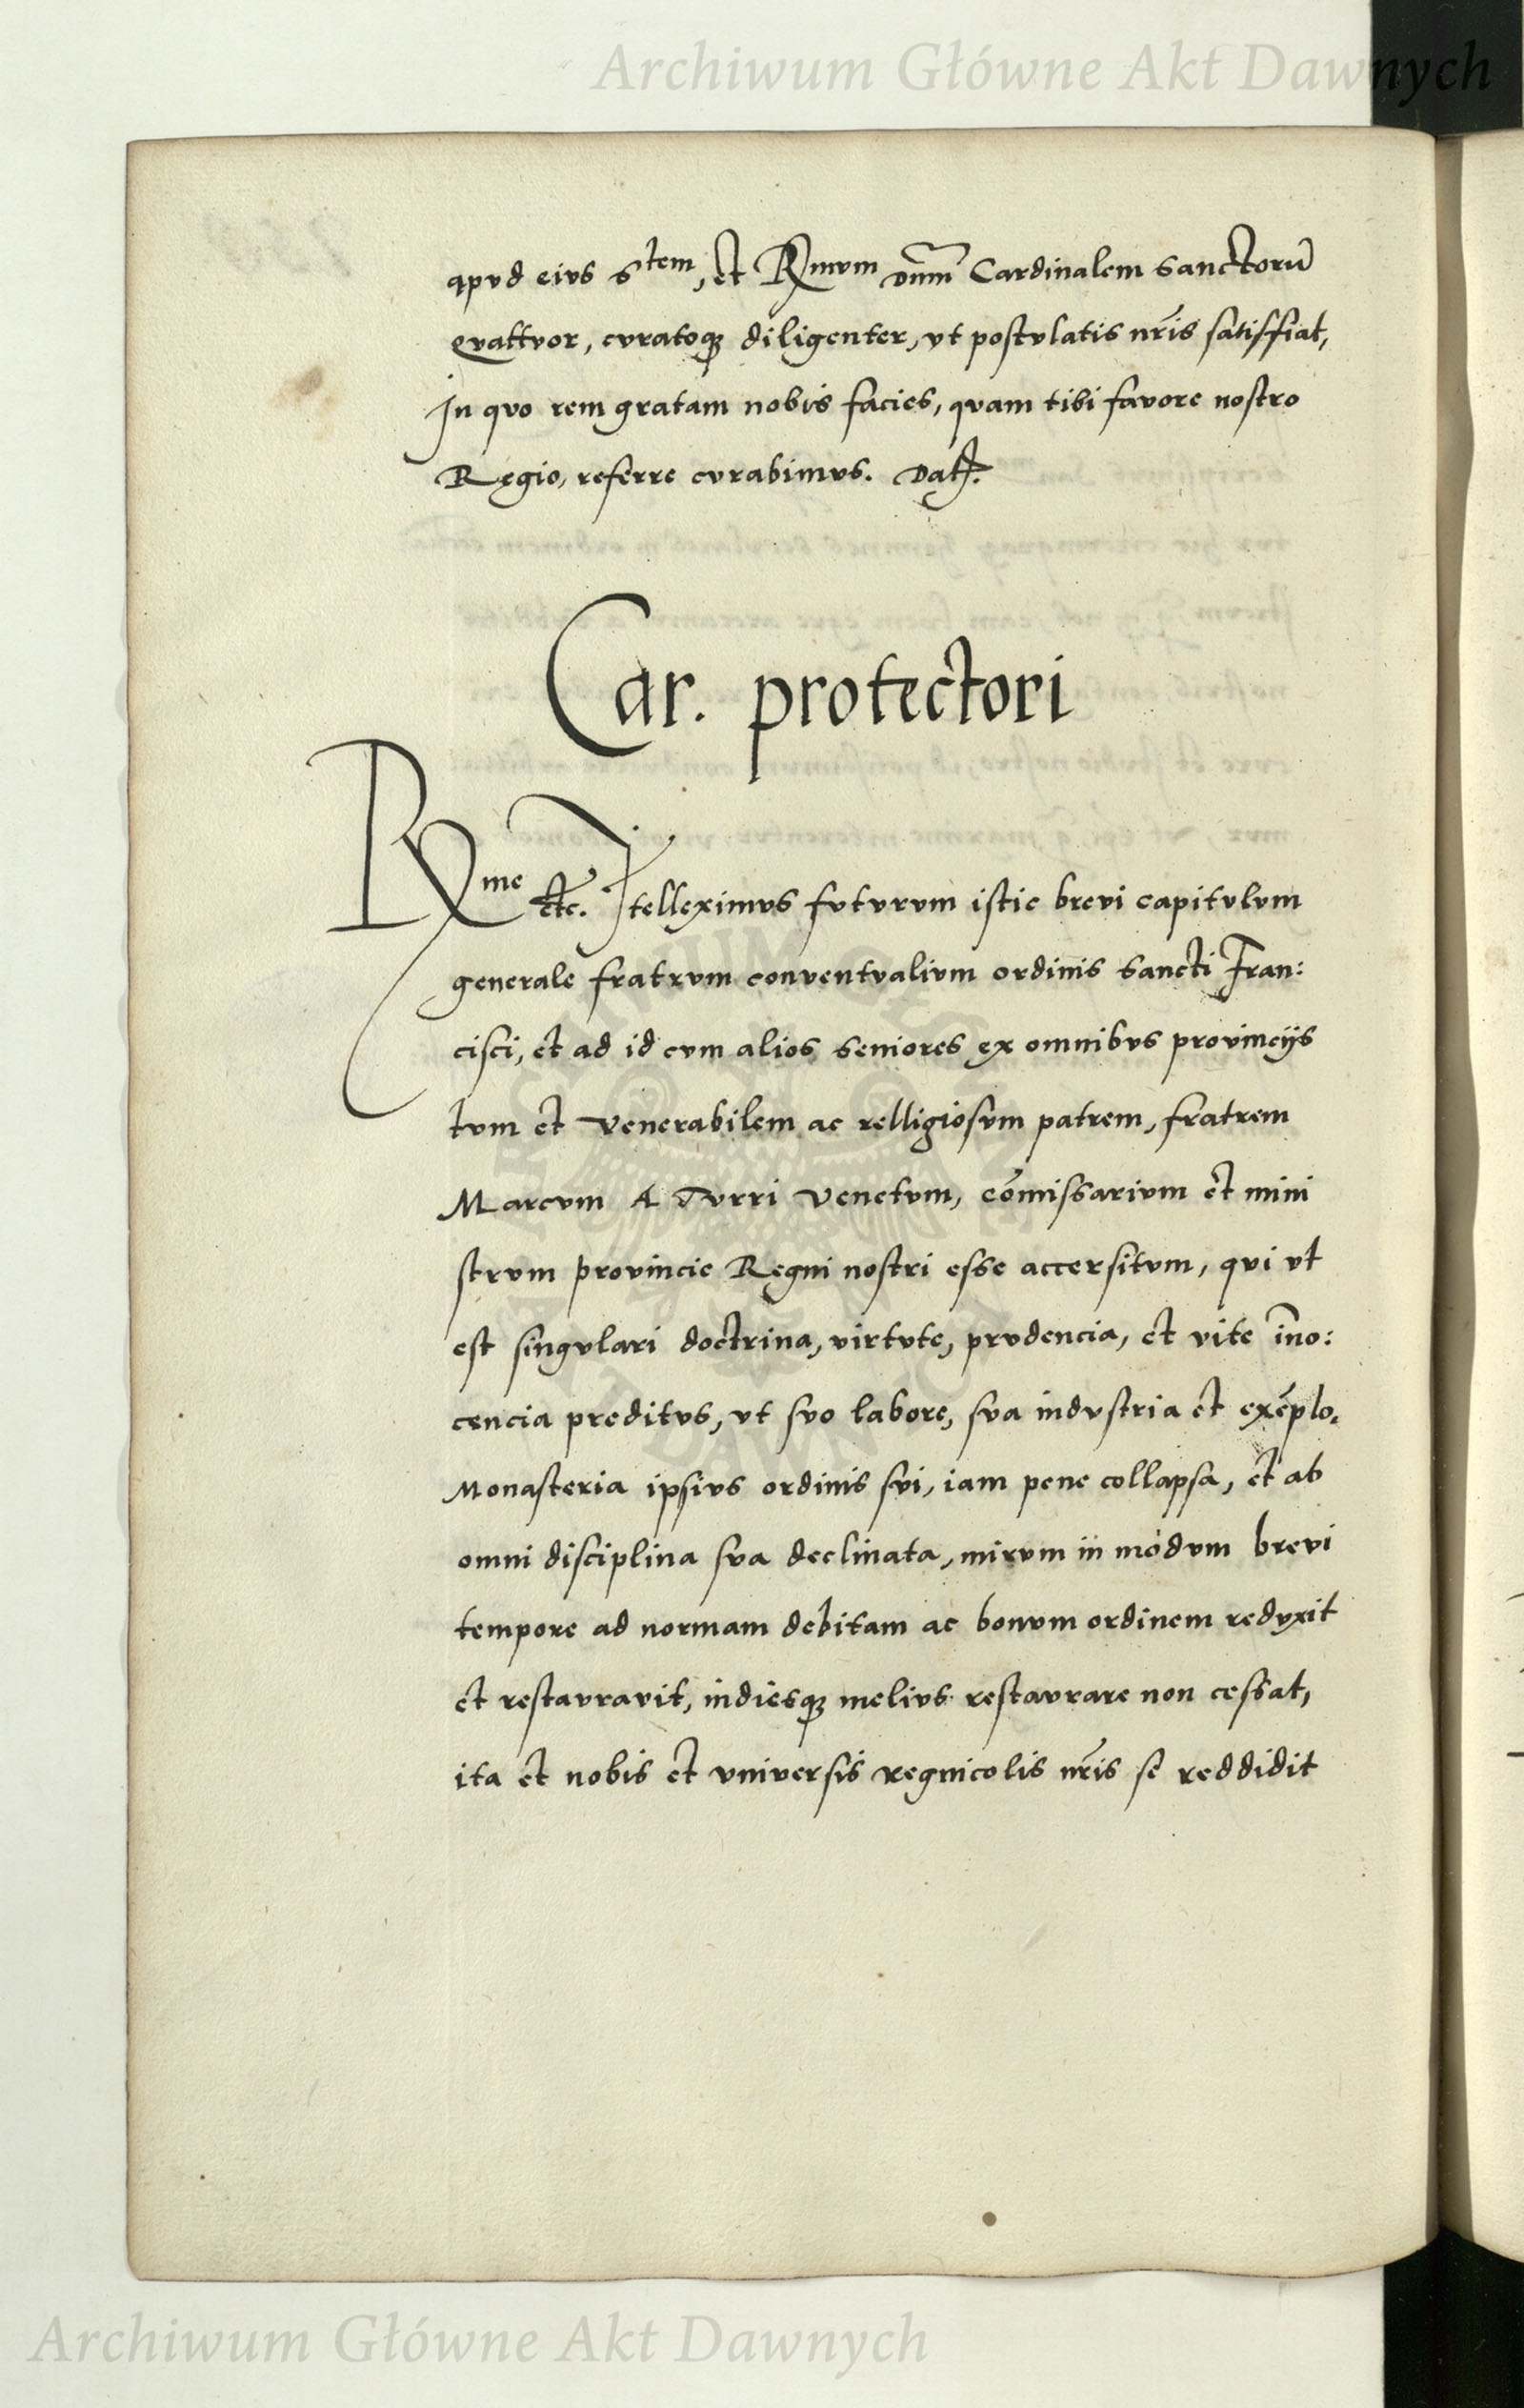 Archiwum Główne Akt Dawnych
apvd eivs Stem, et Rmvm dnm̄ Cardinalem Sanctorū
qvattvor, cvratoqȝ diligenter, vt postvlatis nr̄is satisffiat,
In qvo rem gratam nobis facies, qvam tibi favore nostro
Regio, referre cvrabimvs. Dat̄.
Car. protectori
Rme etc. Itelleximvs fvtvrvm istic brevi capitvlvm
generale fratrvm conventvalivm ordinis Sancti Fran:
cisci, et ad id cvm alios seniores ex omnibvs provincijs
tvm et venerabilem ac relligiosvm patrem, fratrem
Marcvm A Tvrri Venetvm, cōmissarivm et mini
strvm provincie Regni nostri esse accersitvm, qvi vt
est singvlari doctrina, virtvte, prvdencia, et vite īno:
cencia preditvs, vt svo labore, sva indvstria et exēplo,
Monasteria ipsivs ordinis svi, iam pene collapsa, et ab
omni disciplina sva declinata, mirvm in modvm brevi
tempore ad normam debitam ac bonvm ordinem redvxit
et restavravit, indiesqȝ melivs restavrare non cessat,
ita et nobis et vniversis regnicolis nr̄is se reddidit
Archiwum Główne Akt Dawnych